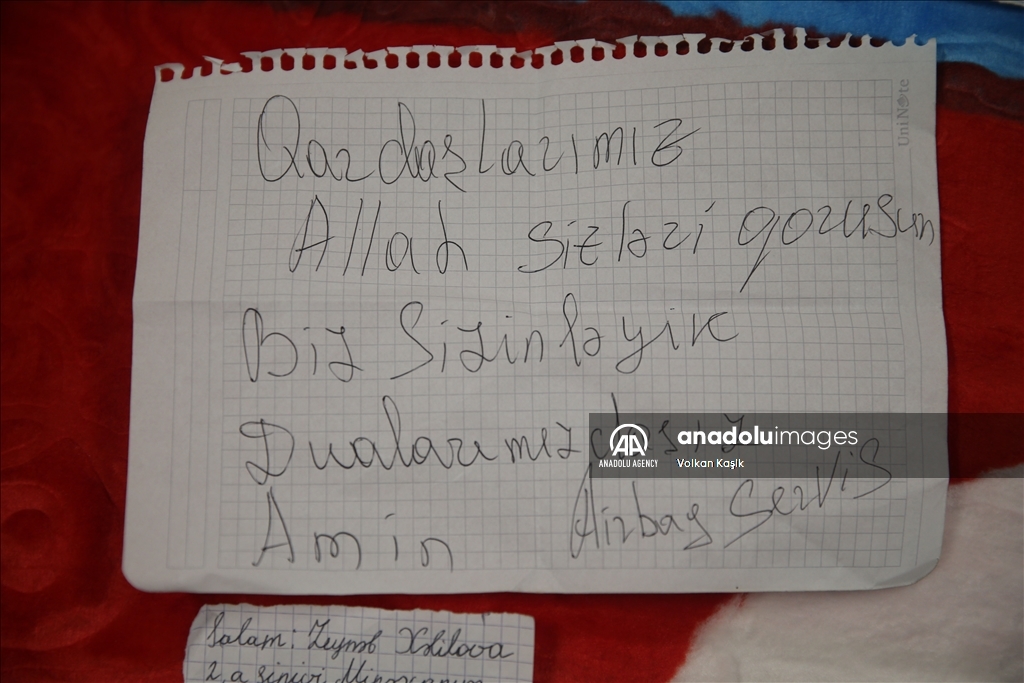 Qardaşlarımız
Allah sizləri qorusun
Biz Sizinləyik
Dualarımızdasız
Amin Airbag Servis
Uni Note
AA
ANADOLU AGENCY
anadoluimages
Volkan Kaşık
Salam: Zeynəb Xəlilova
2, a sinivi